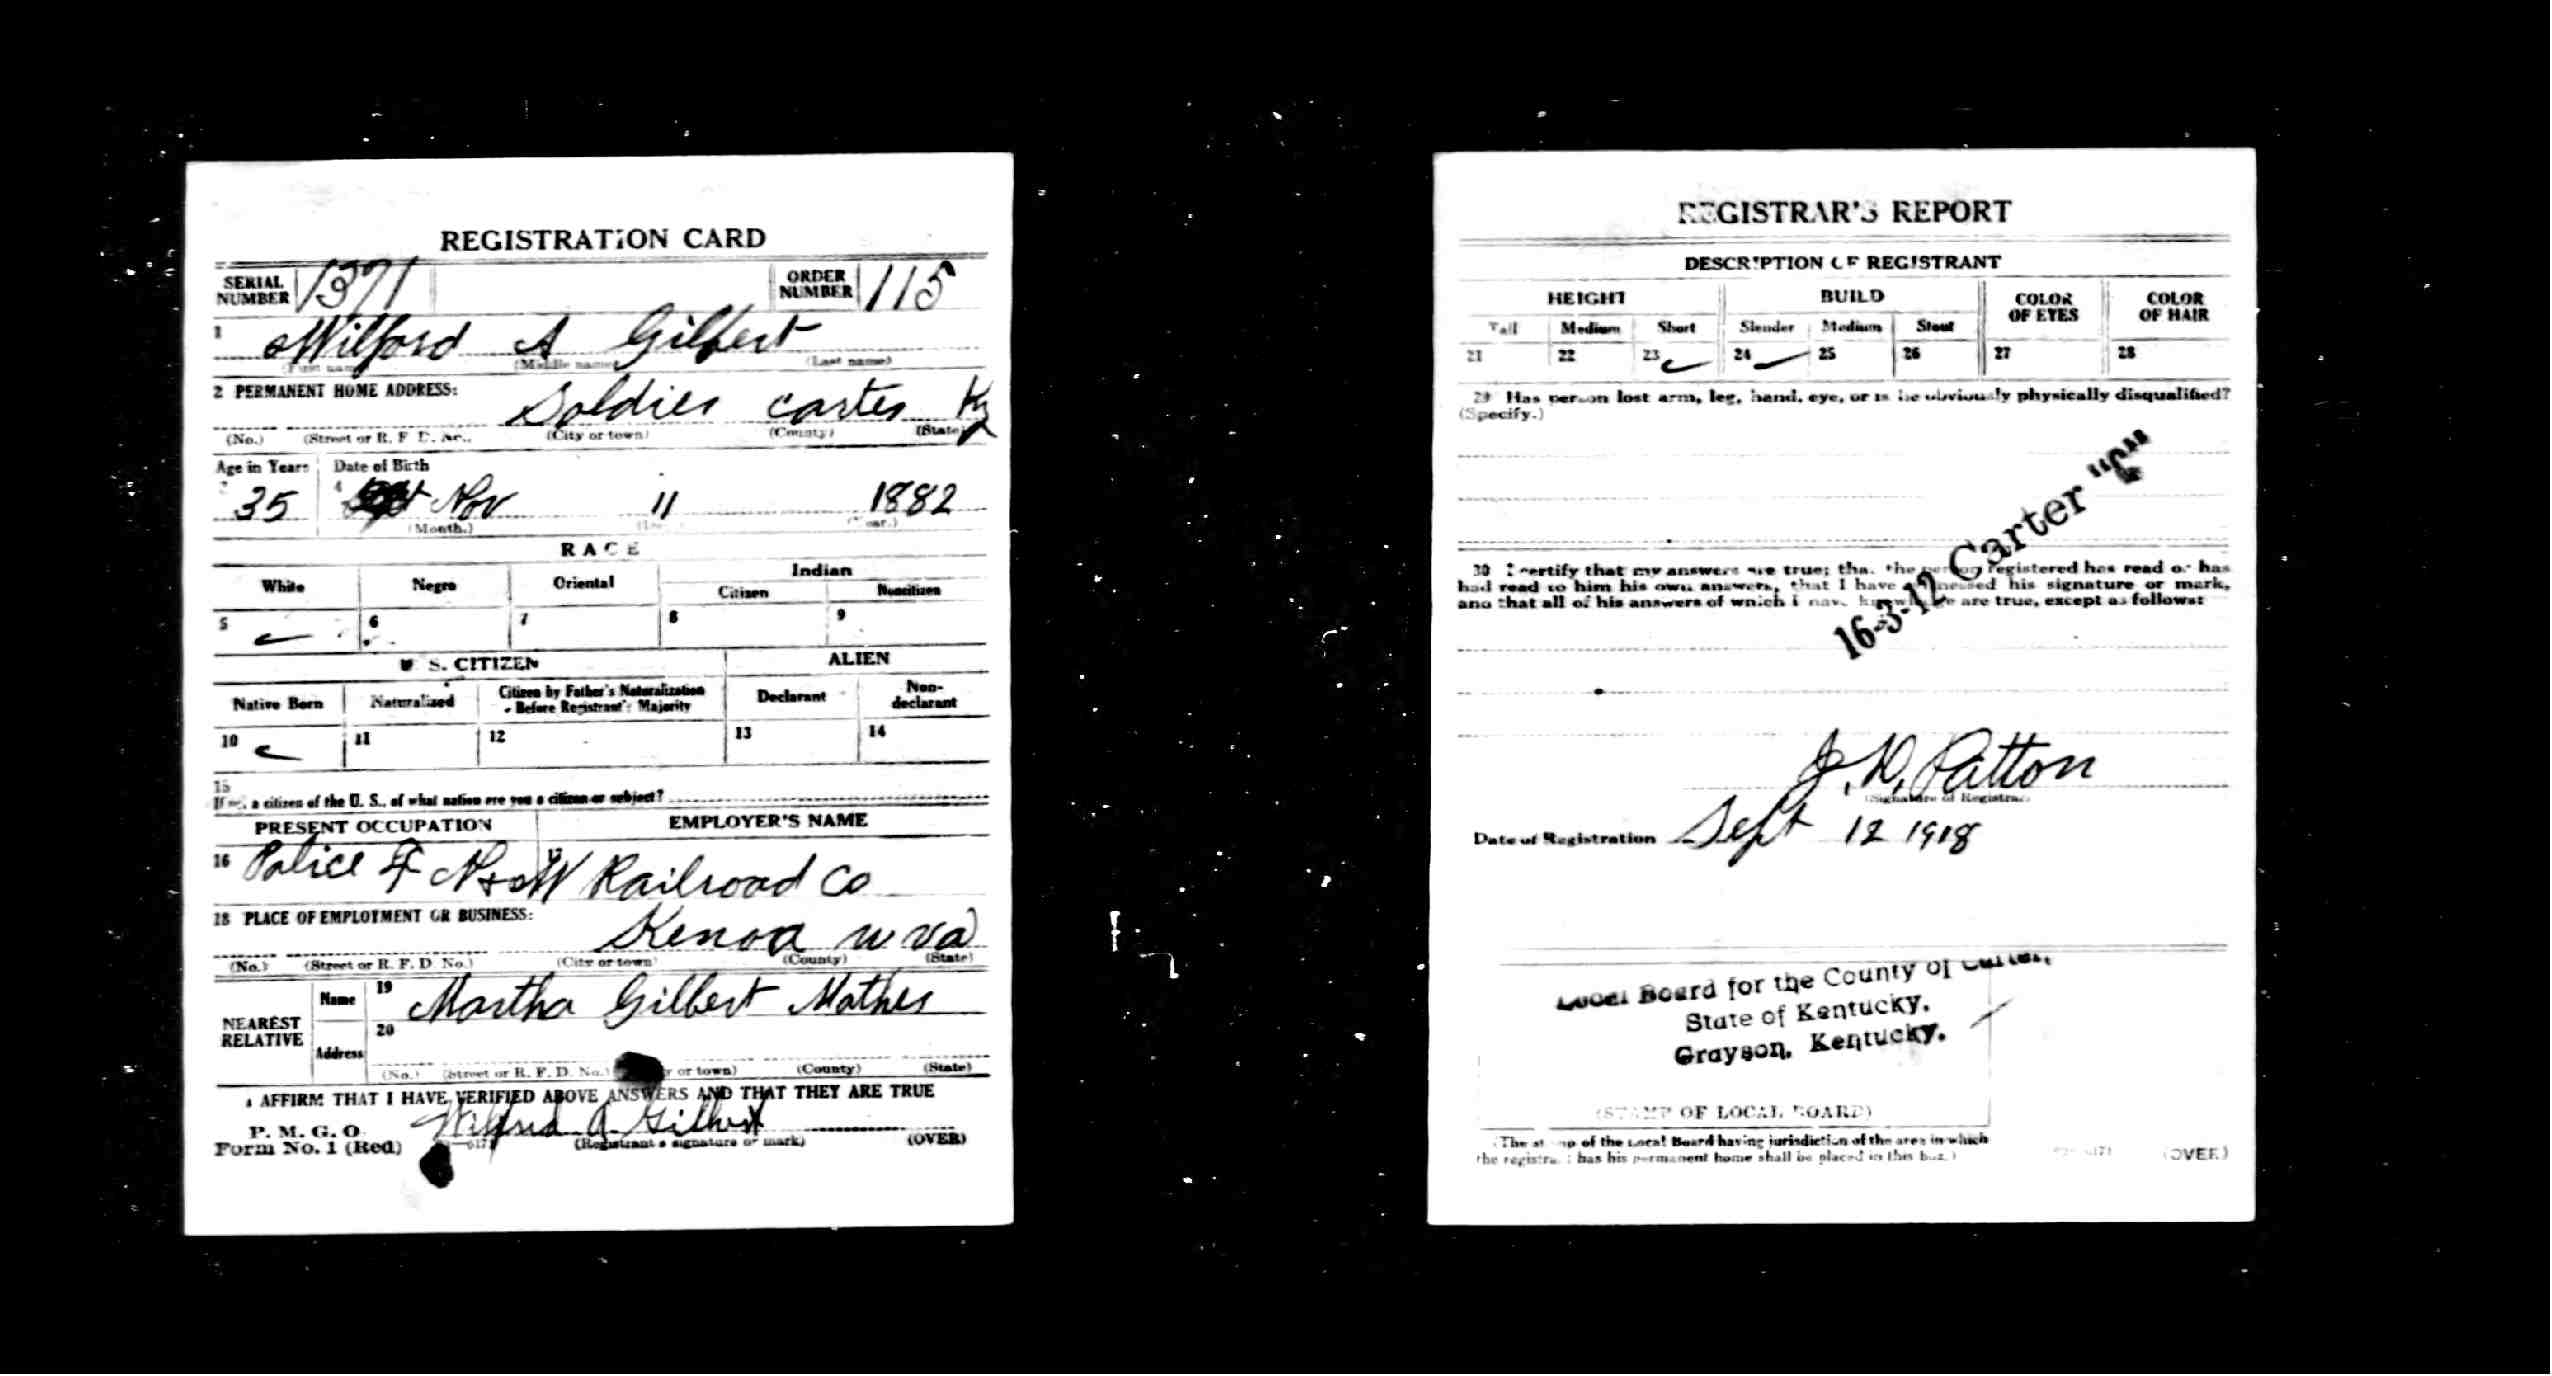 REGISTRATION CARD
SERIAL NUMBER 1371 ORDER NUMBER 115
1 Wilford A Gilbert
(First name) (Middle name) (Last name)
2 PERMANENT HOME ADDRESS:
Soldier Carter Ky
(No.) (Street or R. F. D. No.) (City or town) (County) (State)
Age in Years Date of Birth
3 35 4 Nov 11 1882
(Month.) (Day.) (Year.)
RACE
White Negro Oriental Indian
Citizen Noncitizen
5 6 7 8 9
U. S. CITIZEN ALIEN
Native Born Naturalized Citizen by Father's Naturalization Before Registrant's Majority Declarant Non-declarant
10 11 12 13 14
15
If not a citizen of the U. S., of what nation are you a citizen or subject?
PRESENT OCCUPATION EMPLOYER'S NAME
16 Police 17 N & W Railroad Co
18 PLACE OF EMPLOYMENT OR BUSINESS:
Kenova W Va
(No.) (Street or R. F. D. No.) (City or town) (County) (State)
NEAREST RELATIVE
Name 19 Martha Gilbert Mother
Address 20
(No.) (Street or R. F. D. No.) (City or town) (County) (State)
I AFFIRM THAT I HAVE VERIFIED ABOVE ANSWERS AND THAT THEY ARE TRUE
P. M. G. O.
Form No. 1 (Red) Wilford A Gilbert
(Registrant's signature or mark) (OVER)
REGISTRAR'S REPORT
DESCRIPTION OF REGISTRANT
HEIGHT BUILD COLOR OF EYES COLOR OF HAIR
Tall Medium Short Slender Medium Stout
21 22 23 24 25 26 27 28
29 Has person lost arm, leg, hand, eye, or is he obviously physically disqualified?
(Specify.)
16-3-12 Carter "C"
30 I certify that my answers are true; that the person registered has read or has
had read to him his own answers, that I have witnessed his signature or mark,
and that all of his answers of which I have knowledge are true, except as follows:
J. D. Patton
(Signature of Registrar)
Date of Registration Sept 12 1918
Local Board for the County of Carter,
State of Kentucky,
Grayson, Kentucky.
(STAMP OF LOCAL BOARD)
(The stamp of the Local Board having jurisdiction of the area in which
the registrant has his permanent home shall be placed in this box.)
(OVER)